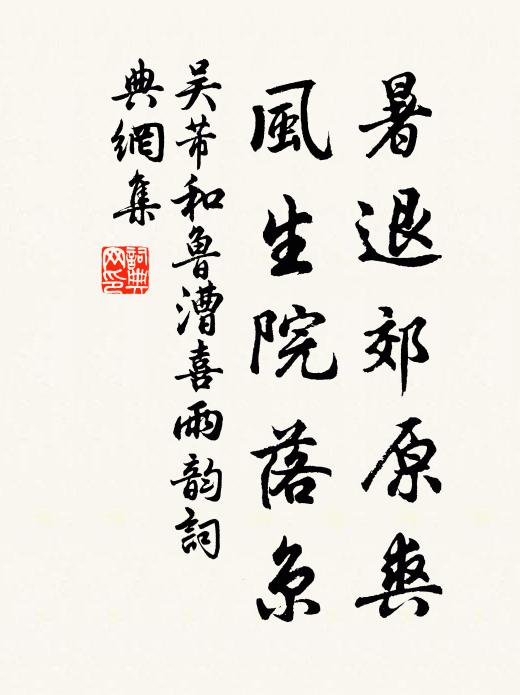 暑退郊原爽
風生院落京
吴芾和魯漕喜雨韵詞
典網集
詞典
网印